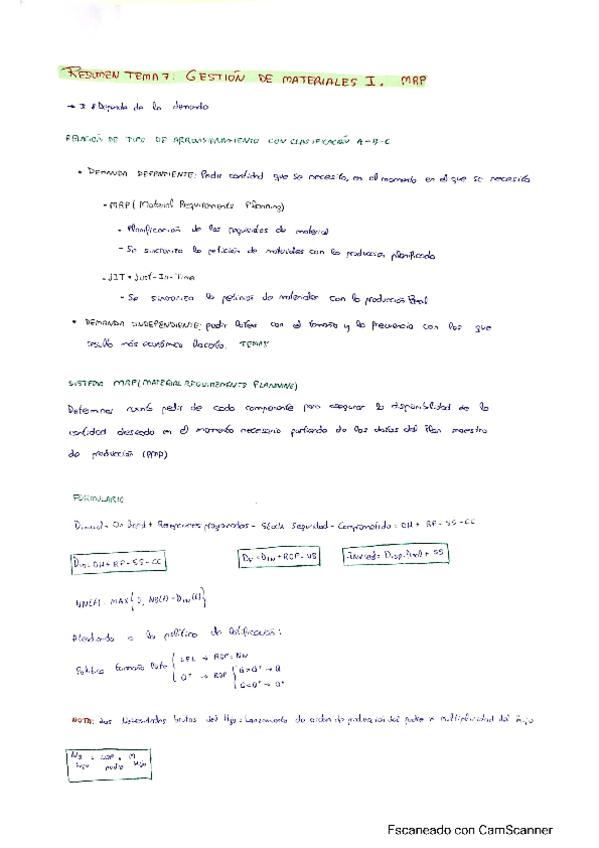 RESUMEN TEMA 7: GESTIÓN DE MATERIALES I. MRP
Depende de la demanda
RELACIÓN DE TIPO DE APROVISIONAMIENTO CON CLASIFICACIÓN A-B-C
• DEMANDA DEPENDIENTE: Pedir cantidad que se necesita, en el momento en el que se necesita
- MRP (Material Requirements Planning)
- Planificación de los requisitos de material
- Se sincroniza la petición de materiales con la producción planificada
- JIT = Just-In-Time
- Se sincroniza la petición de materiales con la producción Real
• DEMANDA INDEPENDIENTE: pedir lotes con el tamaño y la frecuencia con los que
resulte más económico hacerlo. TEMA 8
SISTEMA MRP (MATERIAL REQUIREMENTS PLANNING)
Determinar cuánto pedir de cada componente para asegurar la disponibilidad de la
cantidad deseada en el momento necesario partiendo de los datos del Plan maestro
de producción (PMP)
FORMULARIO
Dinicial = On Hand + Recepciones programadas - Stock Seguridad - Comprometido = OH + RP - SS - CC
Din = OH + RP - SS - CC
DF = Din + ROP - NB
Invened = Disp. final + SS
NN(t) = MAX {0, NB(t) - Din(t)}
Atendiendo a la política de lotificación:
tamaño lote { LFL → ROP = NN
Q* → ROP { Q>Q* → Q
Q<Q* → Q*
NOTA: Las Necesidades brutas del Hijo = Lanzamiento de orden de producción del padre x multiplicidad del hijo
NB = LOP x M
hijo padre hijo
Escaneado con CamScanner